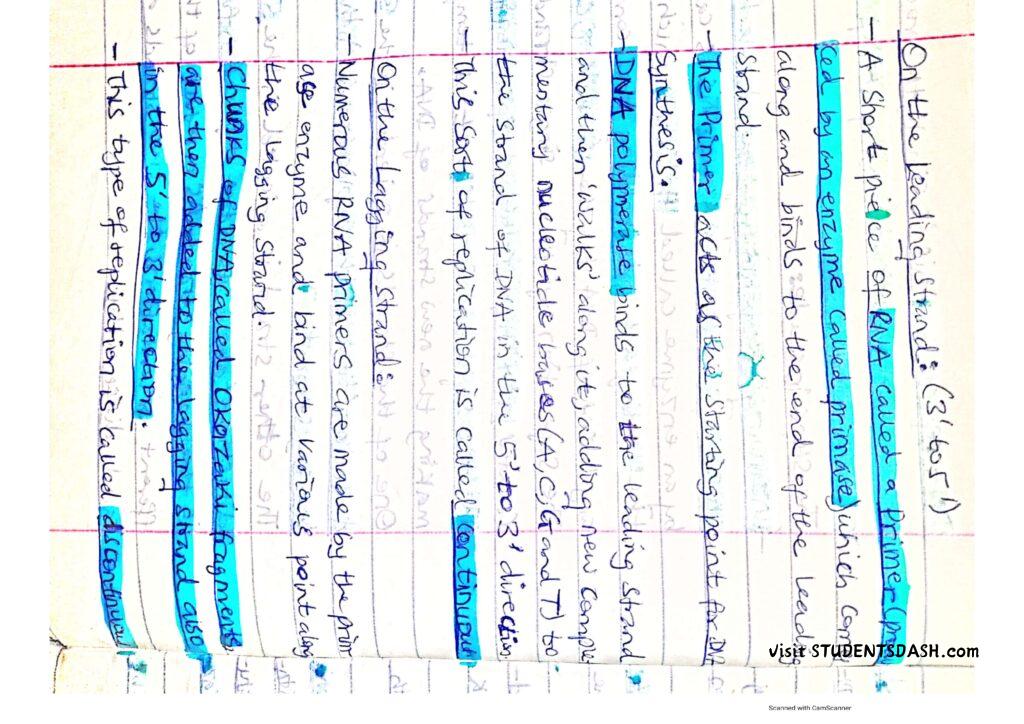 On the leading strand: (3' to 5')
- A short piece of RNA called a Primer (pro
ced by an enzyme called primase) which com
along and binds to the end of the leading
strand.
- The Primer acts as the starting point for DNA
synthesis.
- DNA polymerase binds to the leading strand
and then 'walks' along it, adding new comple
mentary nucleotide bases (A, C, G and T) to
the strand of DNA in the 5' to 3' direction
- This sort of replication is called continuous
On the lagging strand:
- Numerous RNA primers are made by the prim
age enzyme and bind at various point along
the lagging strand.
- Chunks of DNA, called Okazaki fragments
are then added to the lagging strand also
in the 5' to 3' direction.
- This type of replication is called discontinuou
visit STUDENTSDASH.com
Scanned with CamScanner